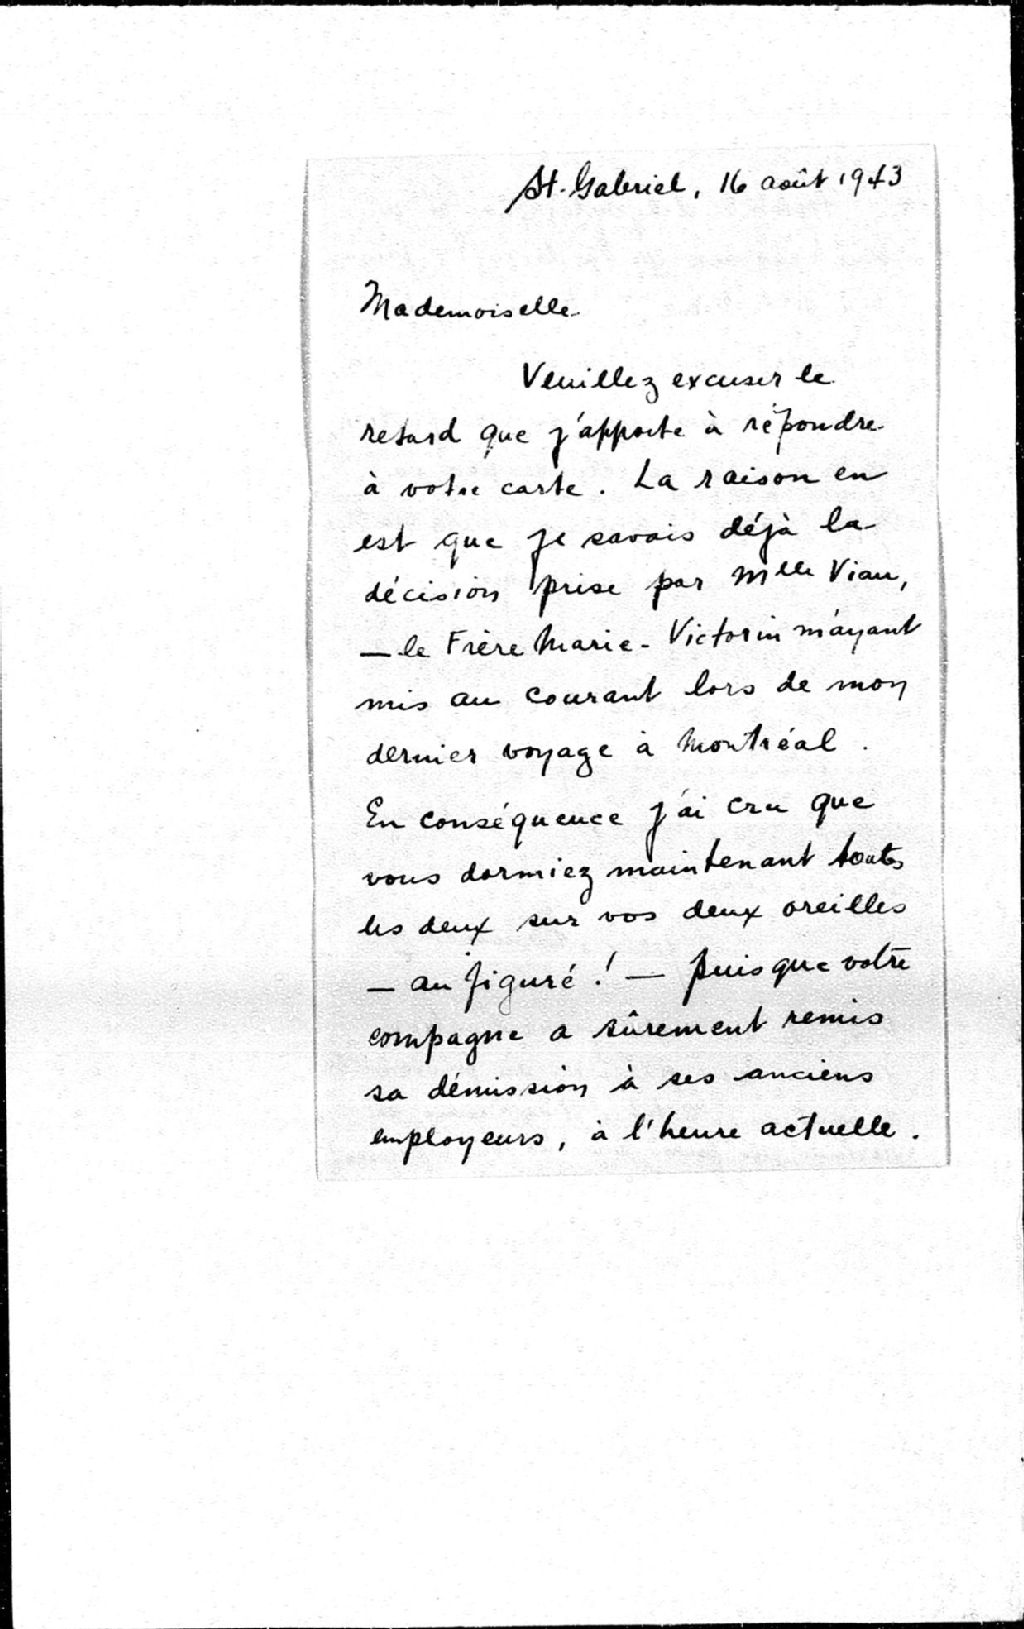 St. Gabriel, 16 août 1943
Mademoiselle
Veuillez excuser le
retard que j'apporte à répondre
à votre carte. La raison en
est que je savais déjà la
décision prise par Mlle Viau,
— le Frère Marie-Victorin m'ayant
mis au courant lors de mon
dernier voyage à Montréal.
En conséquence j'ai cru que
vous dormiez maintenant toutes
les deux sur vos deux oreilles
— au figuré ! — puisque votre
compagne a sûrement remis
sa démission à ses anciens
employeurs, à l'heure actuelle.